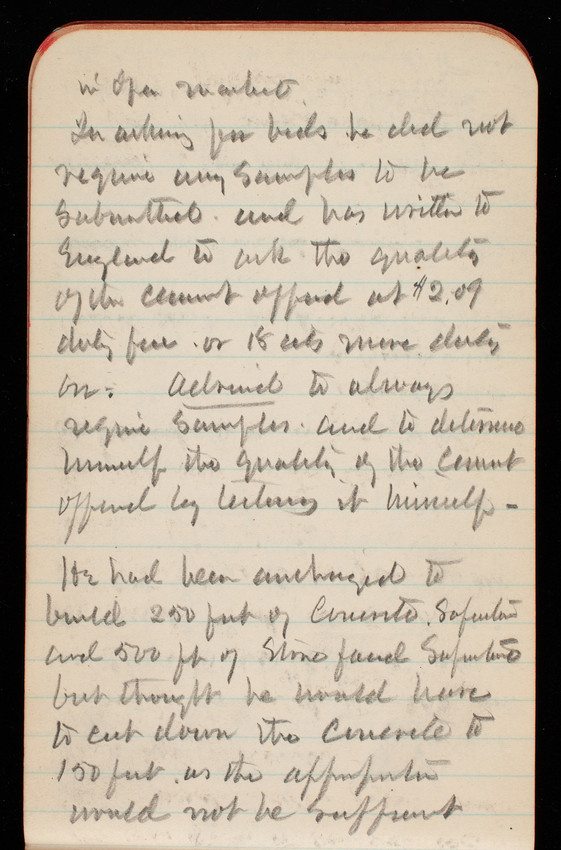 in open market.
In asking for bids he did not
require any samples to be
submitted. and has written to
England to ask the quality
of the cement offered at $2.09
duty free. or 18 cts more duty
on. Advised to always
require samples. and to determine
himself the quality of the cement
offered by testing it himself -
He had been authorized to
build 250 feet of Concrete.
and 500 ft. of Stone faced
but thought he would have
to cut down the concrete to
150 feet. as the
would not be sufficient